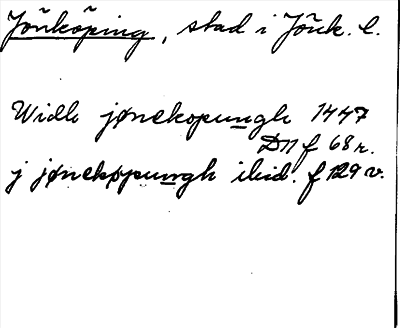 Jönköping, stad i Jönk. l.
Widh jønekopungh 1447
DN f 68 r.
j jønekøpungh ibid. f 129 v.